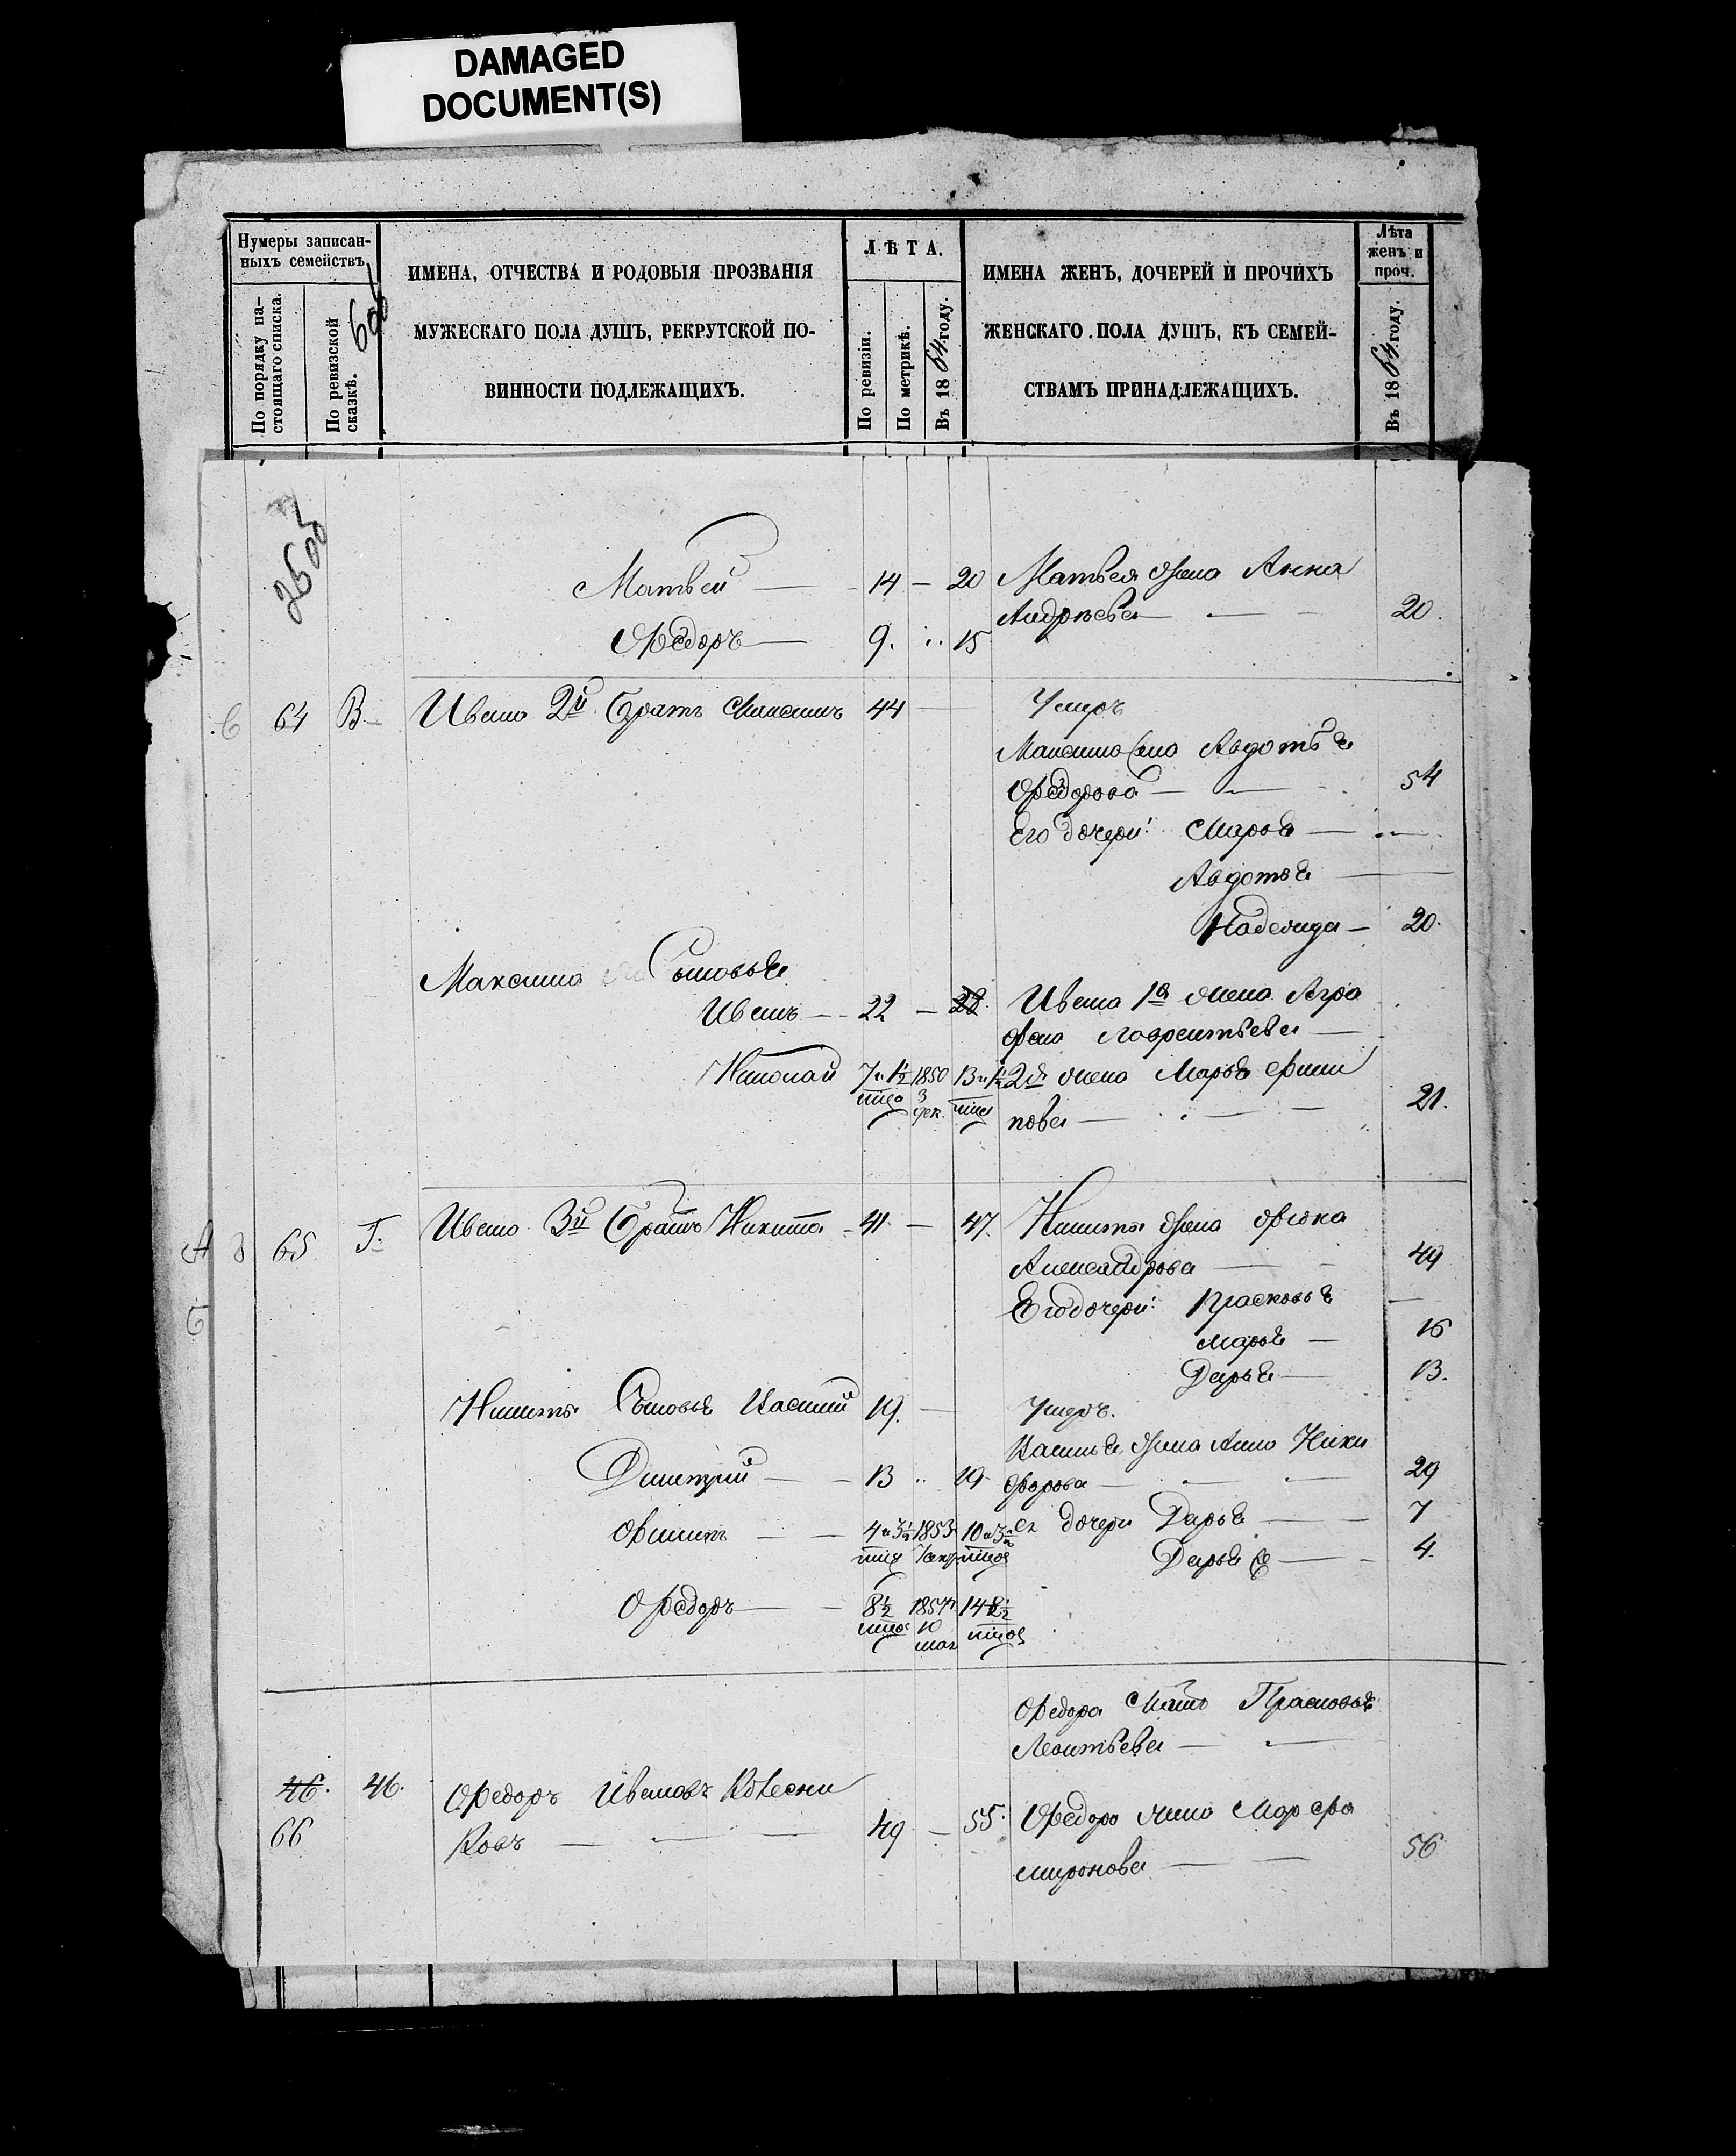 DAMAGED
DOCUMENT(S)
Нумеры записан-
ныхъ семействъ
По порядку на-
стоящаго списка.
По ревизской
сказкѣ.
ИМЕНА, ОТЧЕСТВА И РОДОВЫЯ ПРОЗВАНІЯ
МУЖЕСКАГО ПОЛА ДУШЪ, РЕКРУТСКОЙ ПО-
ВИННОСТИ ПОДЛЕЖАЩИХЪ.
ЛѢТА.
По ревизіи.
По метрикѣ.
Въ 1864 году.
ИМЕНА ЖЕНЪ, ДОЧЕРЕЙ И ПРОЧИХЪ
ЖЕНСКАГО ПОЛА ДУШЪ, КЪ СЕМЕЙ-
СТВАМЪ ПРИНАДЛЕЖАЩИХЪ.
Лѣта
женъ и
проч.
Въ 1864 году.
Матвей — 14 — 20 Матвея жена Анна
Андрѣева — 20.
Ѳедоръ — 9. 15
64 В. Ивана 2й братъ Максимъ 44 — Умеръ
Максима жена Авдотья
Ѳедорова — 54
Его дочери: Марья —
Авдотья —
Надежда — 20.
Максима Сыновья
Иванъ — 22 — 28 Ивана 1я жена Агра
фена Лаврентьева —
Николай 7 и ½ мѣца 1850 3 дек. 13 и ½ мѣца 2я жена Марья Филип
пова — 21.
65 Г. Ивана 3й братъ Никита 41 — 47. Никиты жена Фекла
Александрова — 49
Его дочери: Прасковья —
Марья — 16
Дарья — 13.
Никиты Сыновья Василий 19. — Умеръ.
Василья жена Анна Ники
Дмитрий — 13 19 форова — 29
Филипъ — 4 и 3½ 1853 10 и 3½ ея дочери Дарья — 7
Дарья — 4.
Ѳедоръ — 8½ 1857 10 мая 14 8½
Ѳедора Мать Прасковья
Леонтьева —
46. 46. Ѳедоръ Ивановъ Колесни
66 ковъ — 49 — 55. Ѳедора жена Марфа
Миронова — 56